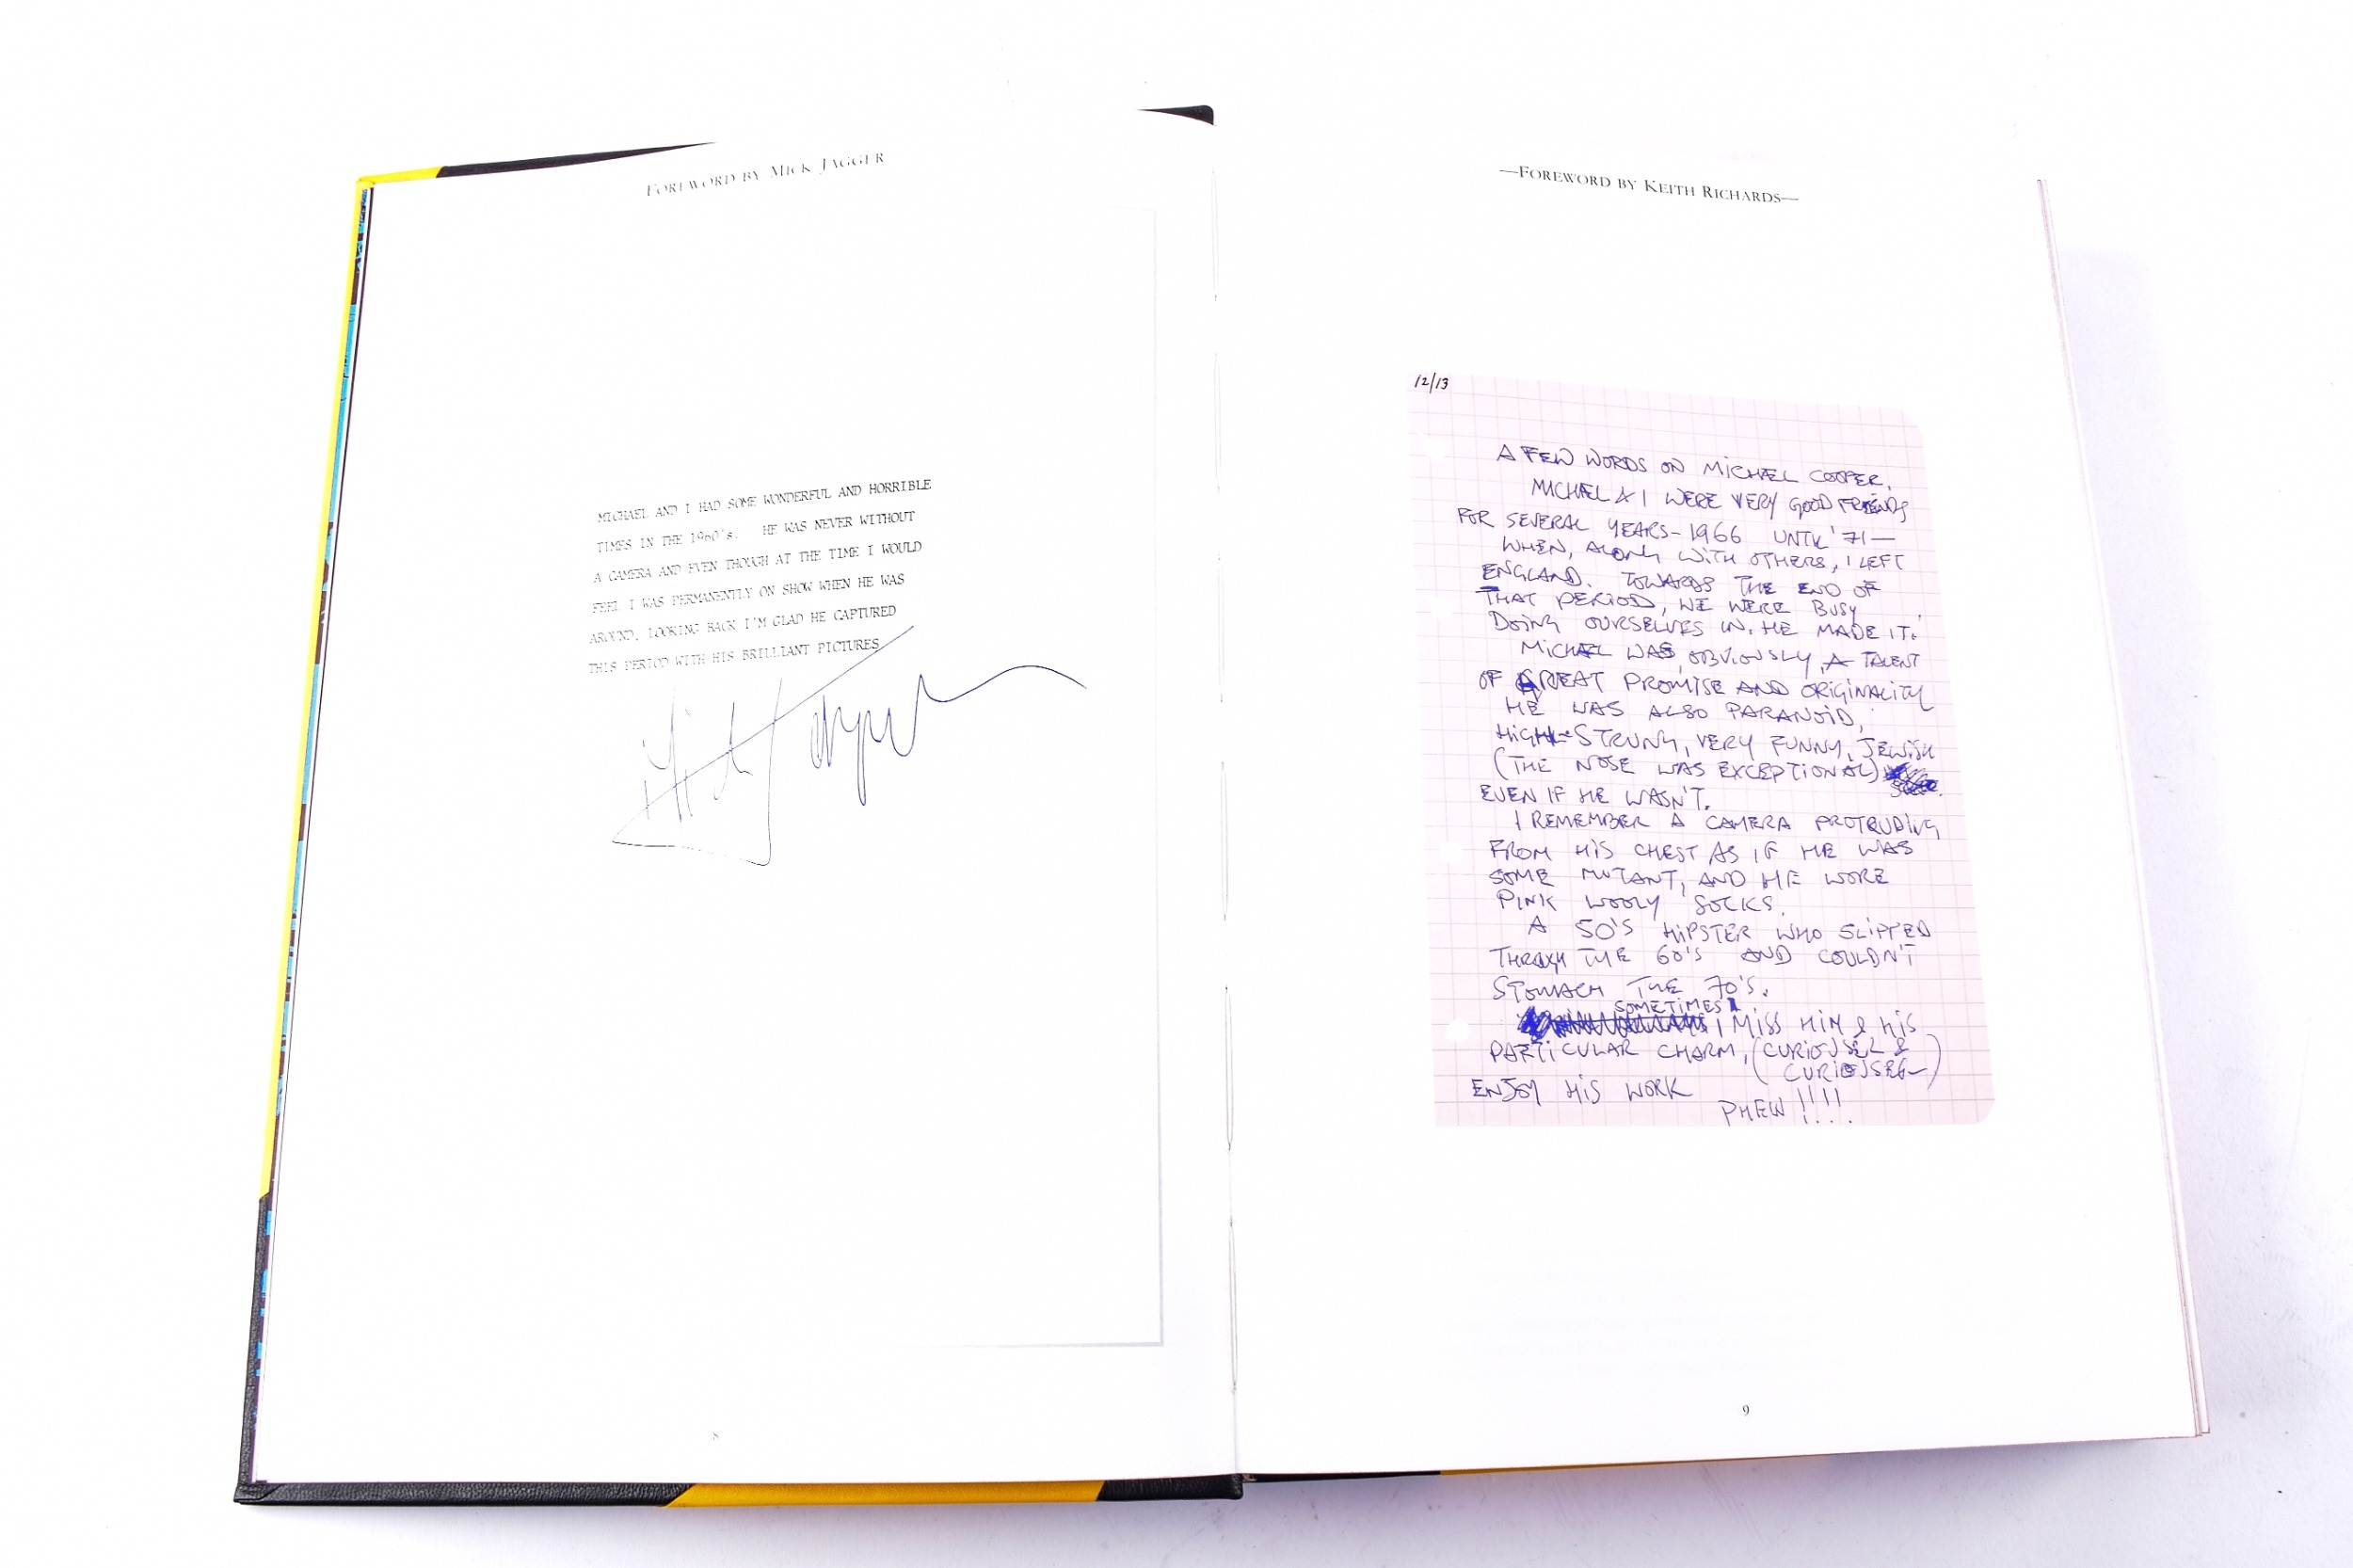 FOREWORD BY MICK JAGGER
MICHAEL AND I HAD SOME WONDERFUL AND HORRIBLE
TIMES IN THE 1960's. HE WAS NEVER WITHOUT
A CAMERA AND EVEN THOUGH AT THE TIME I WOULD
FEEL I WAS PERMANENTLY ON SHOW WHEN HE WAS
AROUND, LOOKING BACK I'M GLAD HE CAPTURED
THIS PERIOD WITH HIS BRILLIANT PICTURES
Mick Jagger
8
—FOREWORD BY KEITH RICHARDS—
12/13
A FEW WORDS ON MICHAEL COOPER.
MICHAEL & I WERE VERY GOOD FRIENDS
FOR SEVERAL YEARS - 1966 UNTIL '71 —
WHEN, ALONG WITH OTHERS, I LEFT
ENGLAND. TOWARDS THE END OF
THAT PERIOD, WE WERE BUSY
DOING OURSELVES IN. HE MADE IT.
MICHAEL WAS, OBVIOUSLY, A TALENT
OF GREAT PROMISE AND ORIGINALITY
HE WAS ALSO PARANOID,
HIGH-STRUNG, VERY FUNNY, JEWISH
(THE NOSE WAS EXCEPTIONAL)
EVEN IF HE WASN'T.
I REMEMBER A CAMERA PROTRUDING
FROM HIS CHEST AS IF HE WAS
SOME MUTANT, AND HE WORE
PINK WOOLY SOCKS.
A 50'S HIPSTER WHO SLIPPED
THROUGH THE 60'S AND COULDN'T
STOMACH THE 70'S.
SOMETIMES
I MISS HIM & HIS
PARTICULAR CHARM, (CURIOUSER &
CURIOUSER—)
ENJOY HIS WORK
PHEW!!!!
9